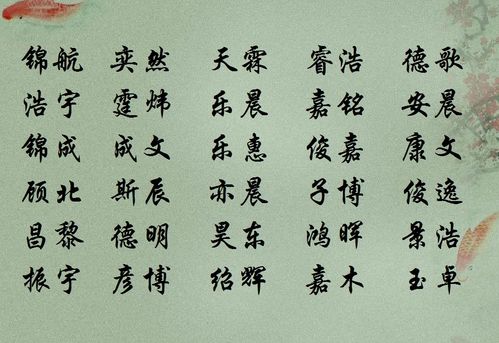 锦航 奕然 天霖 睿浩 德歌
浩宇 霆炜 乐晨 嘉铭 安晨
锦成 成文 乐惠 俊嘉 康文
顾北 斯辰 亦晨 子博 俊逸
昌黎 德明 昊东 鸿晖 景浩
振宇 彦博 绍辉 嘉木 玉卓